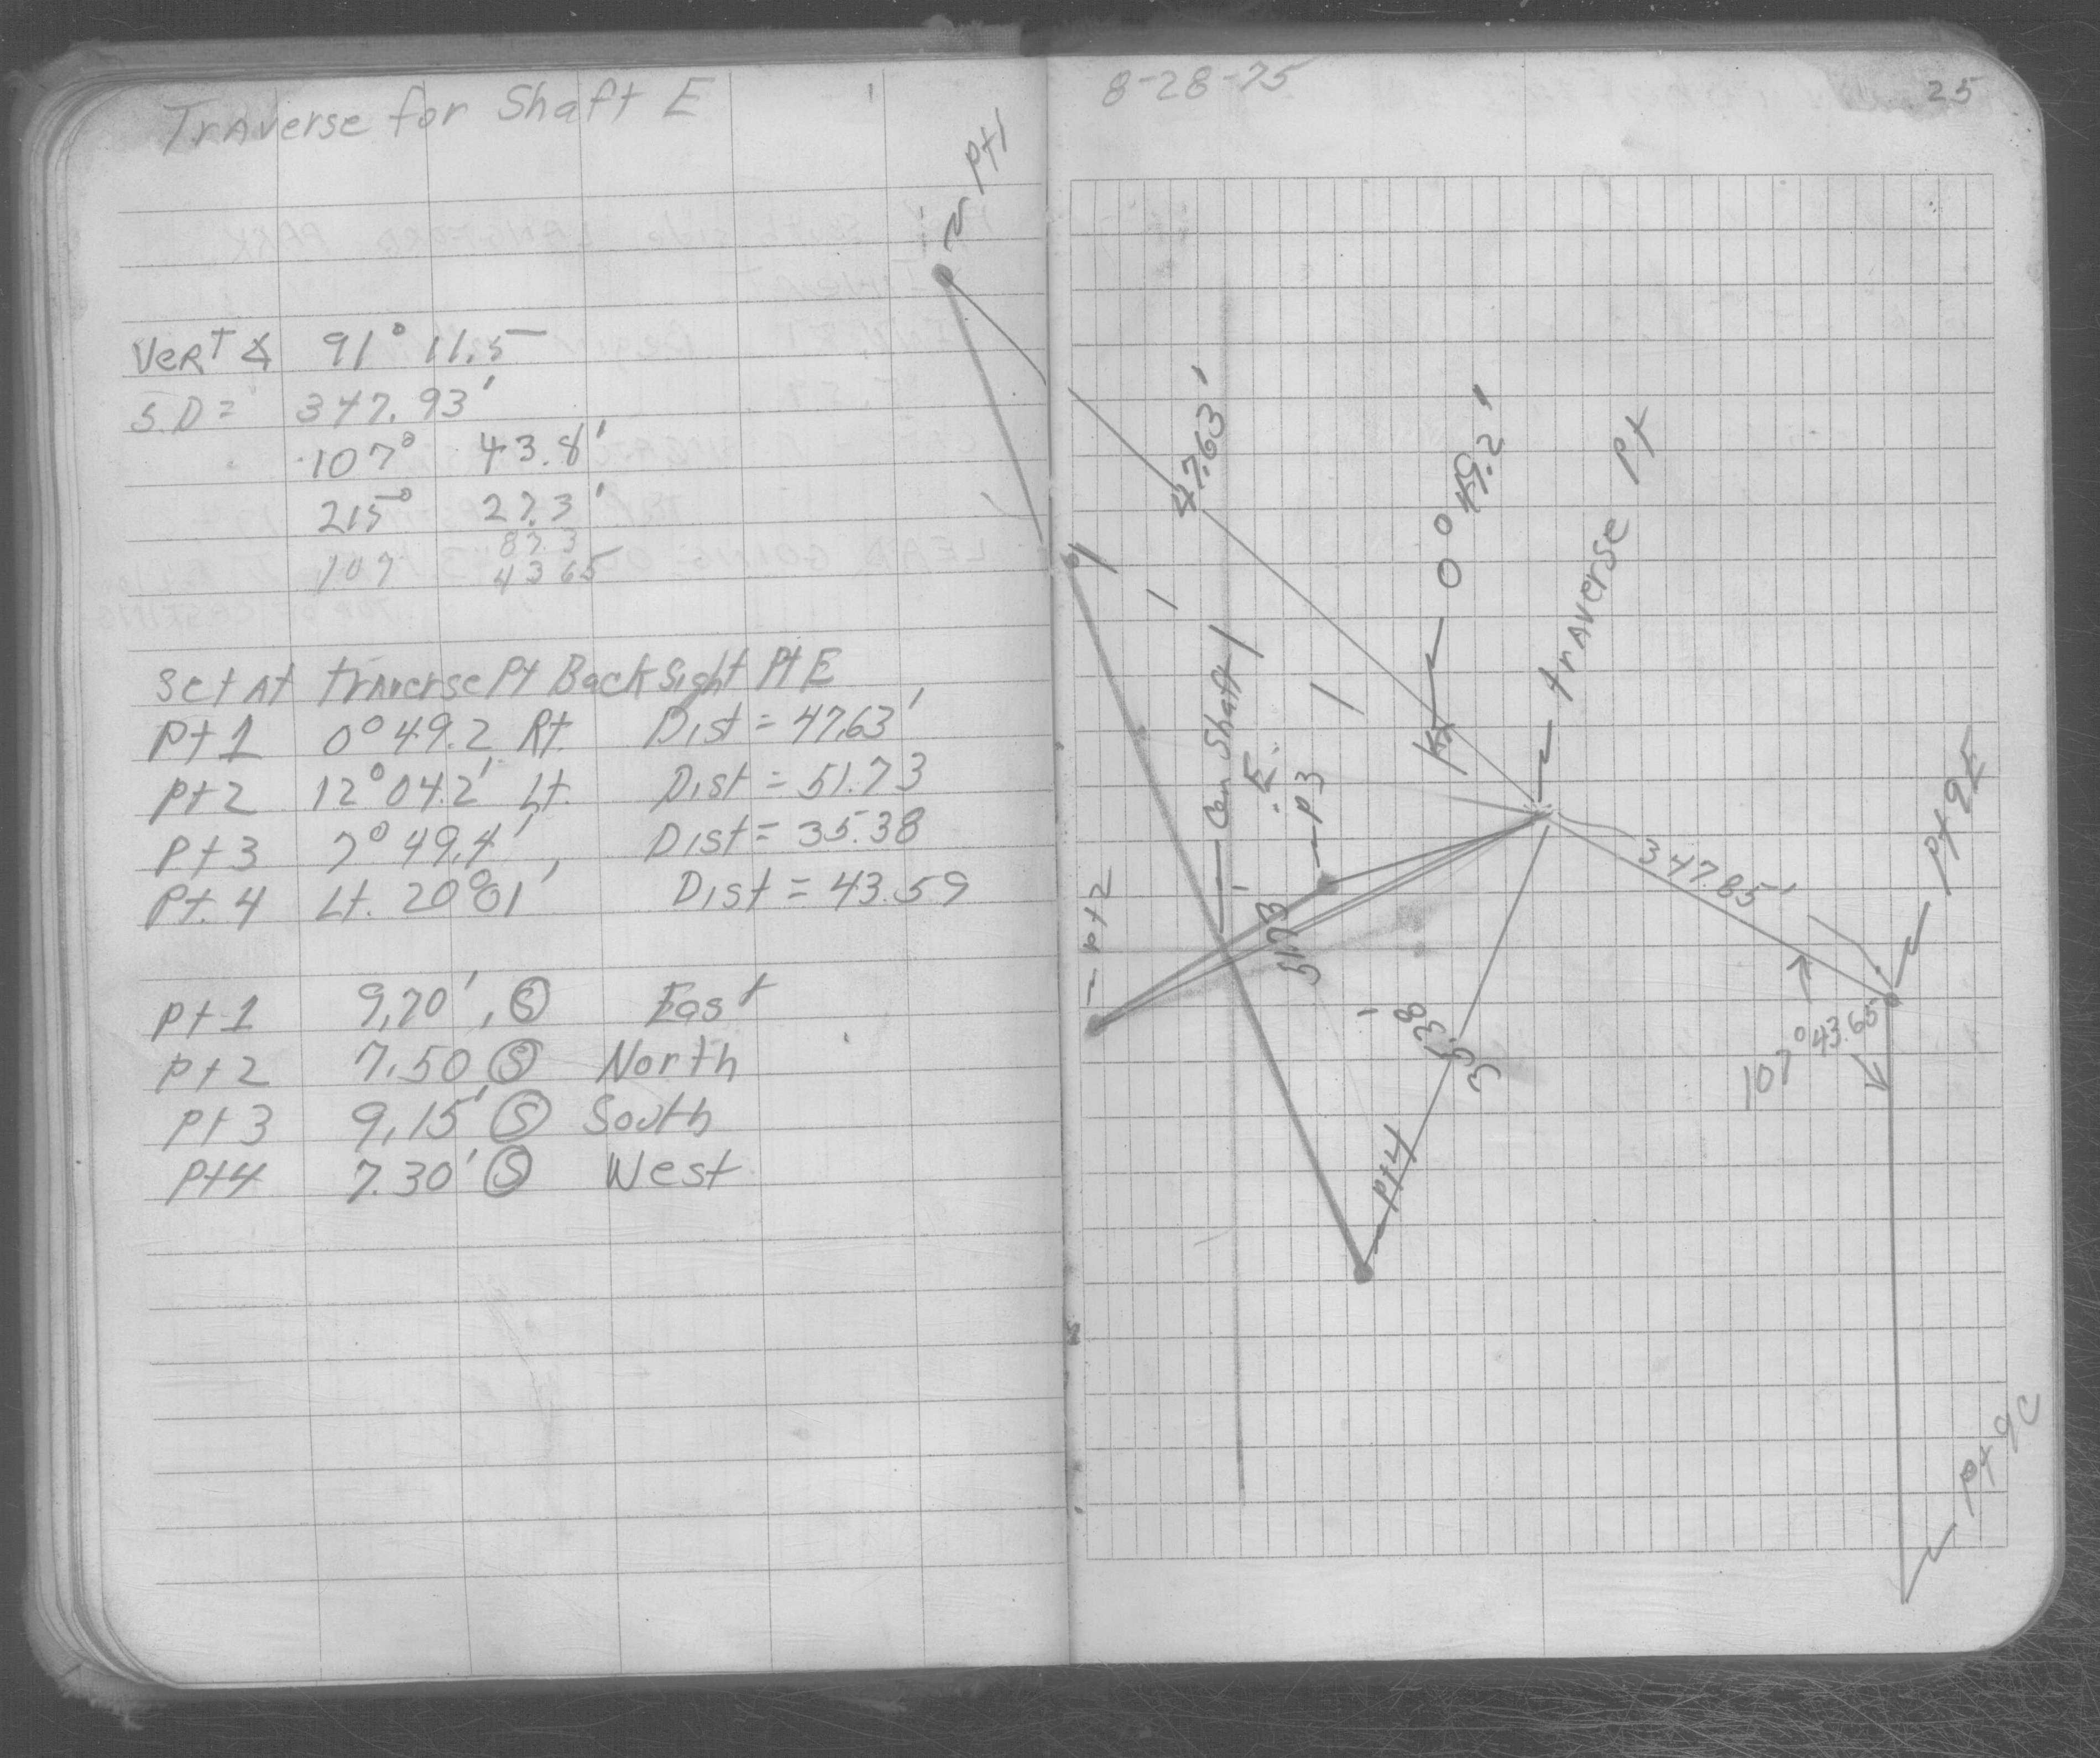 Traverse for Shaft E
Vert ∡ 91° 11.5
S.D = 347.93'
107° 43.8'
215° 27.3'
87.3
107 43 65
Set At traverse Pt Back Sight Pt E
Pt 1 0° 49.2 Rt. Dist = 47.63'
Pt 2 12° 04.2' Lt. Dist = 51.73
Pt 3 7° 49.4', Dist = 35.38
Pt. 4 Lt. 20° 01' Dist = 43.59
Pt 1 9.70', Ⓢ East
Pt 2 7.50 Ⓢ North
Pt 3 9.15' Ⓢ South
Pt 4 7.30' Ⓢ West
8-28-75
25
Pt 1
47.63'
0° 49.2'
traverse Pt
Cen Shaft
E.
P 3
347.85'
Pt 9E
Pt 2
51.73'
35.38'
107° 43.65
Pt 4
Pt 9C